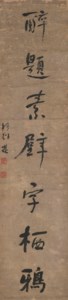 醉題素壁字栖鴉